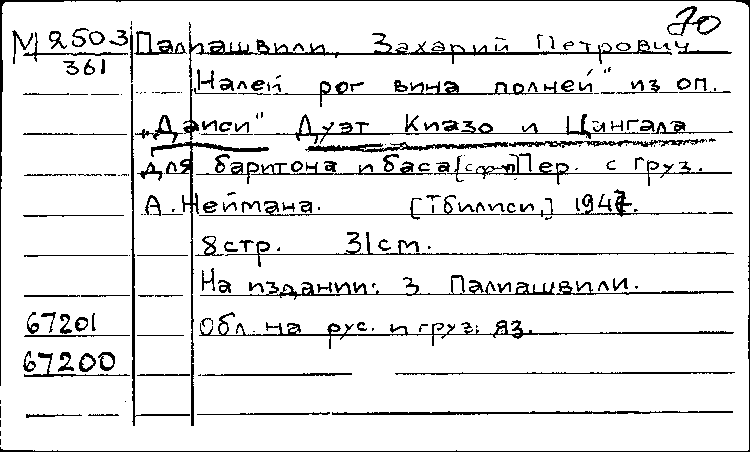 70
М 2503 Палиашвили, Захарий Петрович
361
Налей рог вина полней" из оп.
„Даиси" Дуэт Киазо и Цангала
для баритона и баса [с фп] Пер. с груз.
А. Неймана. [Тбилиси,] 1947.
8 стр. 31 cm.
На издании: З Палиашвили.
67201 Обл. на рус. и груз. яз.
67200